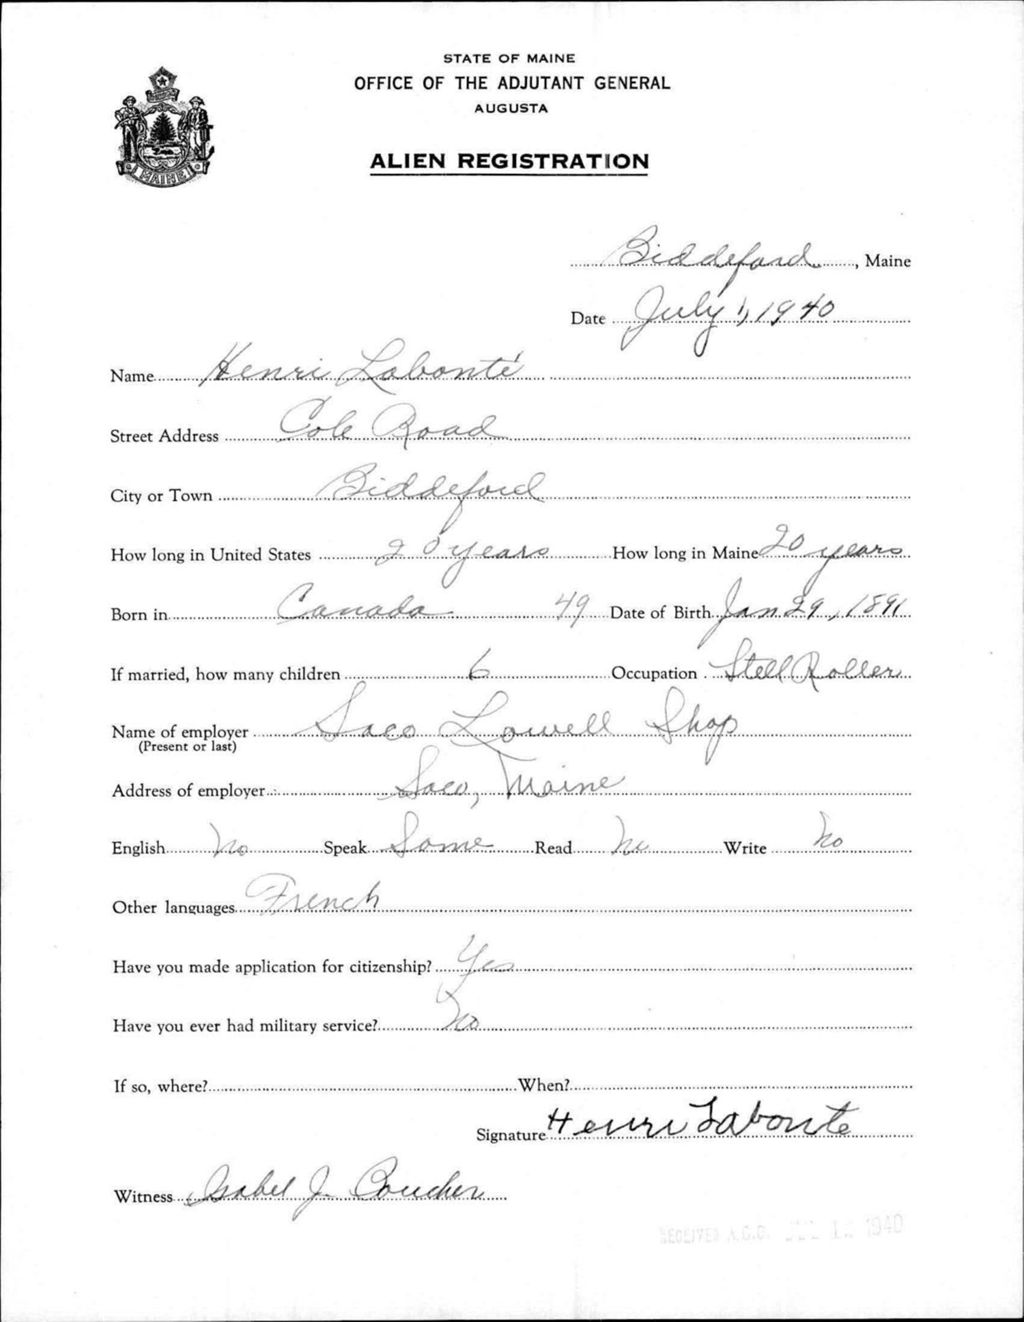 STATE OF MAINE
OFFICE OF THE ADJUTANT GENERAL
AUGUSTA
ALIEN REGISTRATION
MAINE
Biddeford, Maine
Date July 1, 1940
Name Henri Labonté
Street Address Cole Road
City or Town Biddeford
How long in United States 20 years How long in Maine 20 years
Born in Canada 49 Date of Birth Jan 29, 1891
If married, how many children 6 Occupation Stell Roller
Name of employer Saco Lowell Shop
(Present or last)
Address of employer Saco, Maine
English No Speak Some Read No Write No
Other languages French
Have you made application for citizenship? Yes
Have you ever had military service? No
If so, where? When?
Signature Henri Labonte
Witness Isabel J. Boucher
RECEIVED A.G.O. 1940